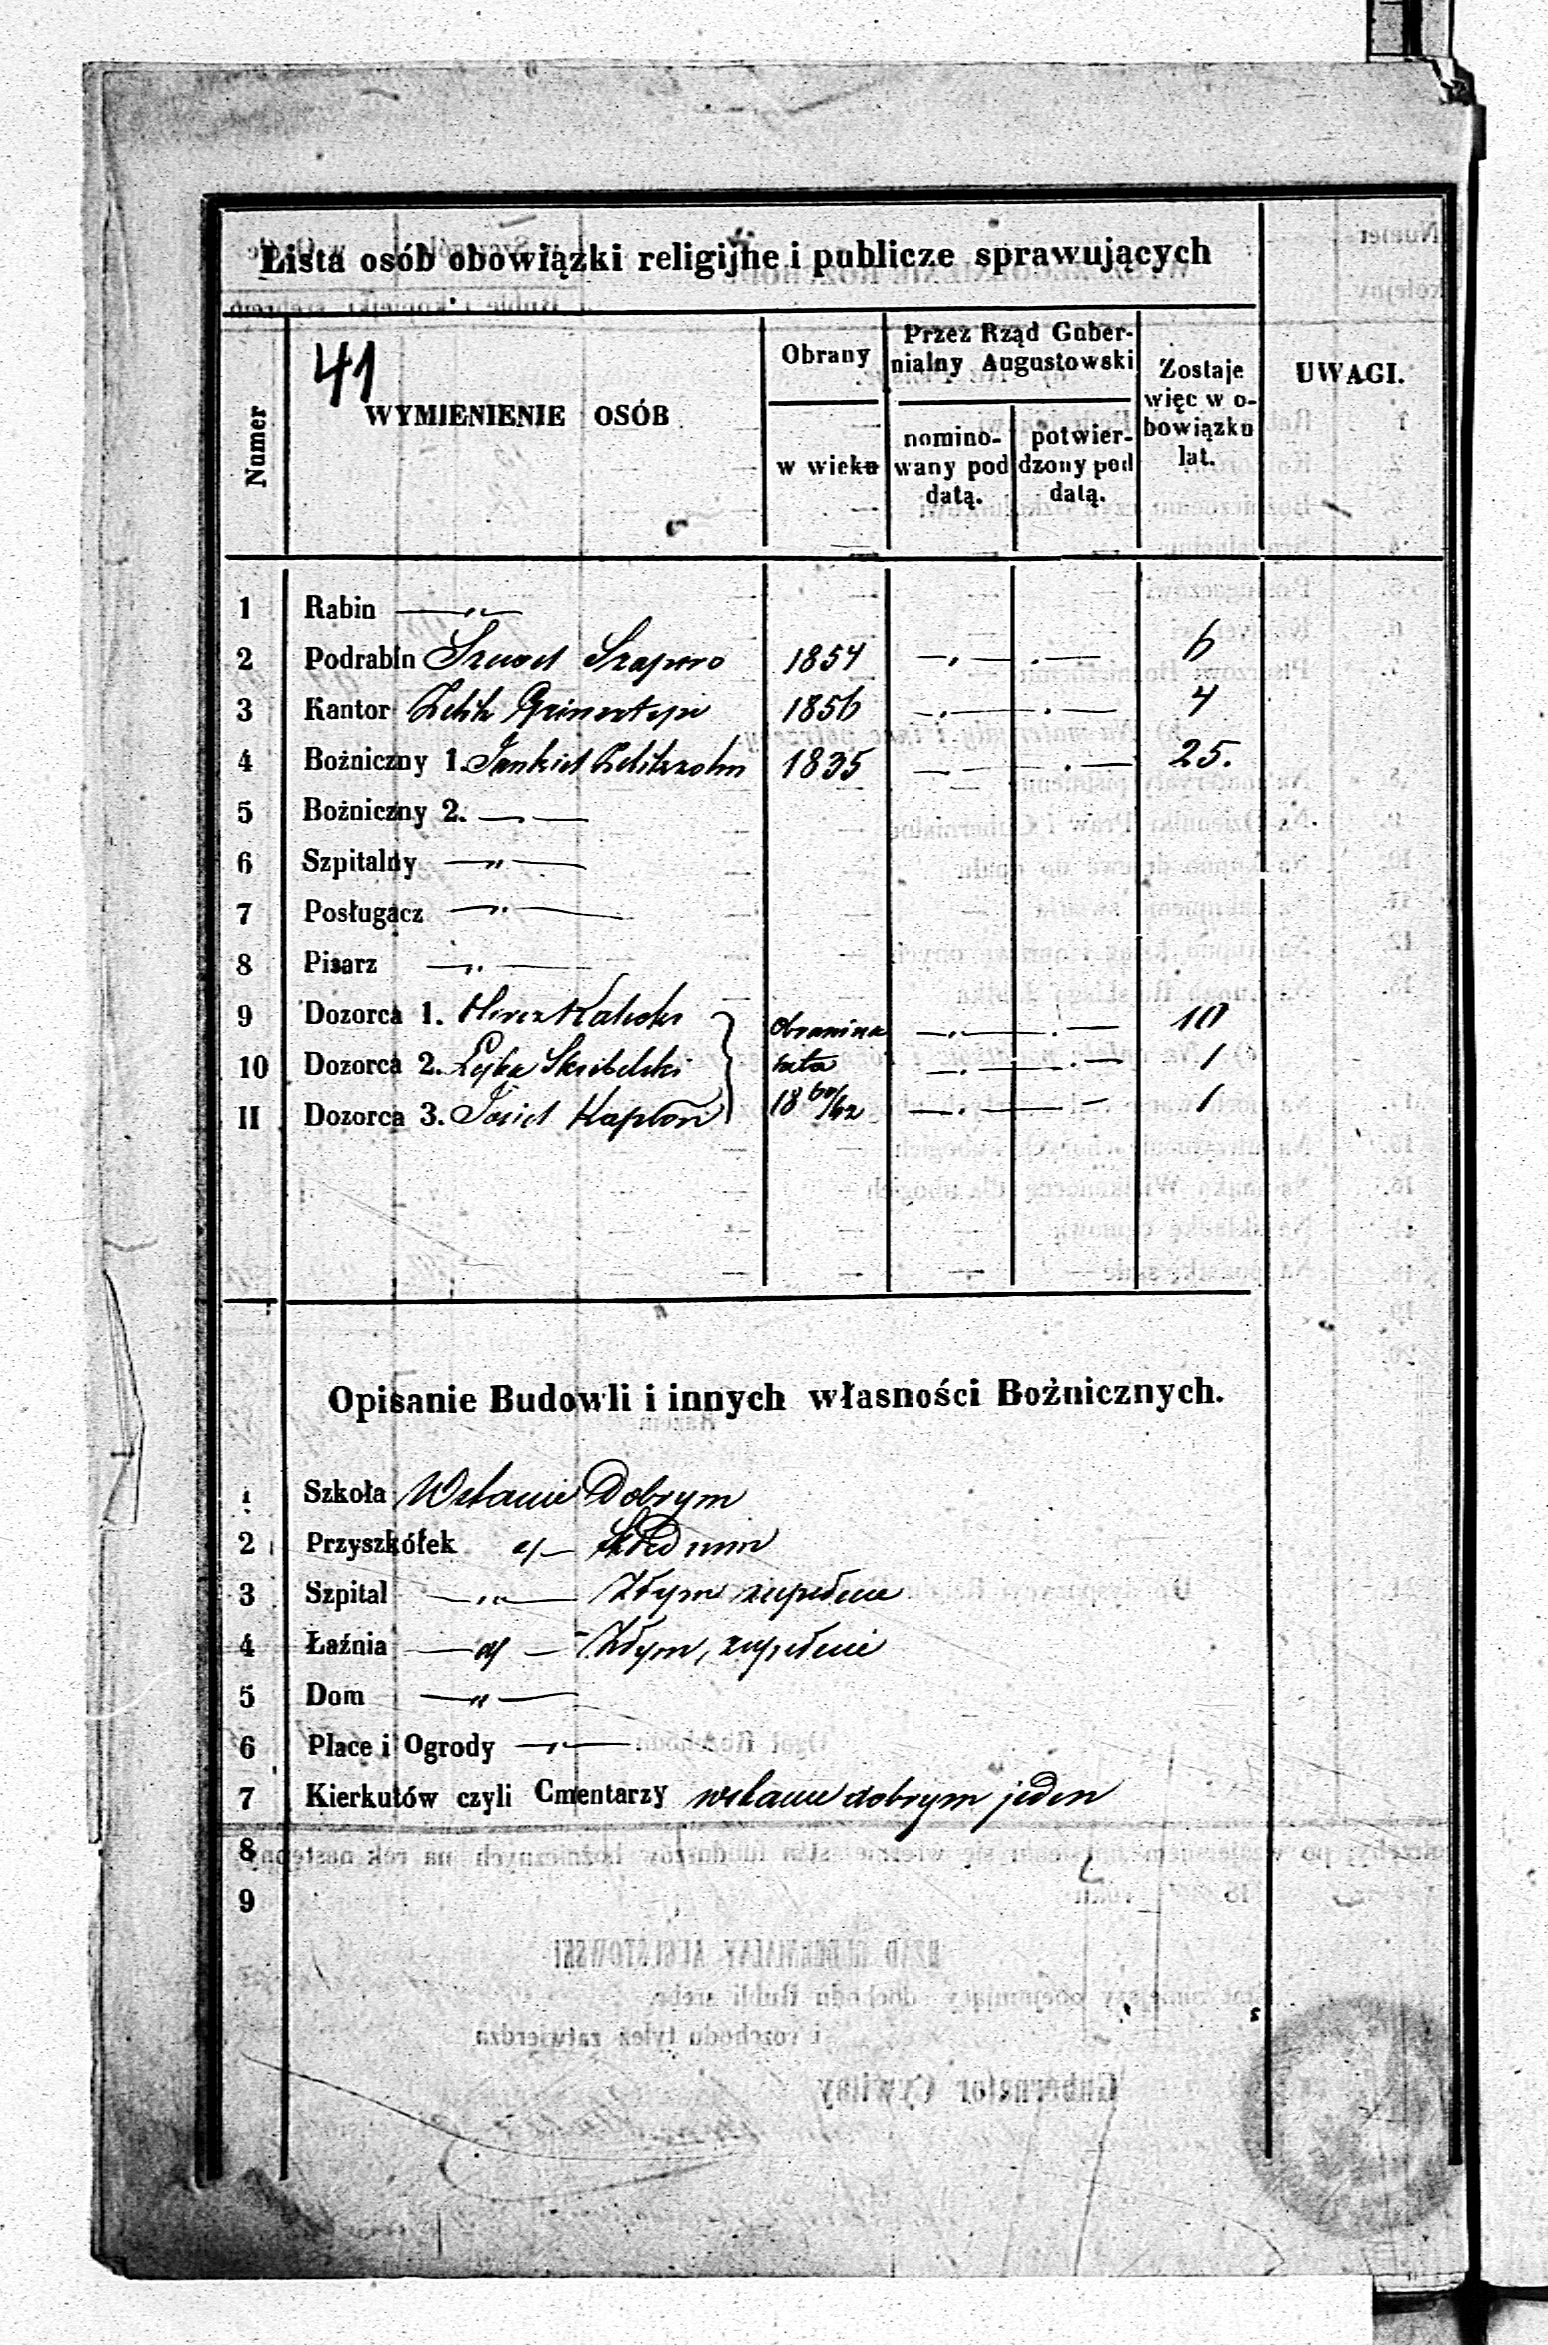 Lista osób obowiązki religijne i publicze sprawujących
41
Numer
WYMIENIENIE OSÓB
Obrany
w wieku
Przez Rząd Guber-
nialny Augustowski
nomino-
wany pod
datą.
potwier-
dzony pod
datą.
Zostaje
więc w o-
bowiązku
lat.
UWAGI.
1 Rabin — „ —
2 Podrabin Szapiro 1854 — „ — „ — 6
3 Kantor Zelik 1856 — „ — „ — 4
4 Bożniczny 1. Jankiel Zelikzohn 1835 — „ — „ — 25.
5 Bożniczny 2. — „ —
6 Szpitalny — „ —
7 Posługacz — „ —
8 Pisarz — „ —
9 Dozorca 1. Hersz — „ — „ — 10
10 Dozorca 2. Lejba lata — „ — „ — 1
11 Dozorca 3. Josiel Kaplan 18 60/62 — „ — „ — 1
Opisanie Budowli i innych własności Bożnicznych.
1 Szkoła W stanie Dobrym
2 Przyszkółek „ —
3 Szpital — „ — Złym zupełnie
4 Łaźnia — „ — Złym, zupełnie
5 Dom — „ —
6 Place i Ogrody — „ —
7 Kierkutów czyli Cmentarzy w stanie dobrym jeden
8
9